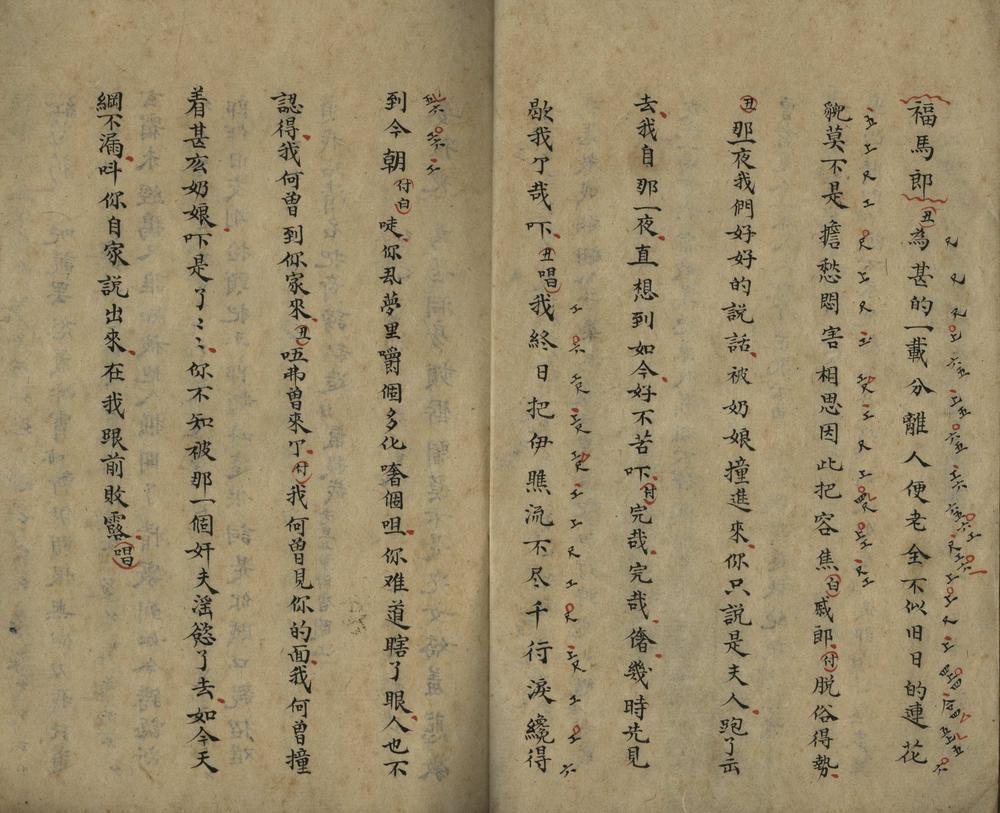 福馬郎 丑 為甚的一載分離人便老全不似旧日的連花
貌莫不是擔愁悶害相思因此把容焦 白 戚郎 付 脱俗得勢
丑 那一夜我們好好的説話被奶娘撞進來你只説是夫人跑了云
去我自那一夜直想到如今好不苦吓 付 完哉完哉偺幾時先見
歇我了哉吓 丑唱 我終日把伊瞧流不尽千行淚纔得
到今朝 付白 㖿你乱夢里嚼個多化嗒個咀你难道瞎了眼人也不
認得我何曾到你家來 丑 㕶弗曾來了 付 我何曾見你的面我何曾撞
着甚厷奶娘吓是了〻〻你不知被那一個奸夫滛慾了去如今天
網不漏呌你自家説出來在我跟前敗露 唱